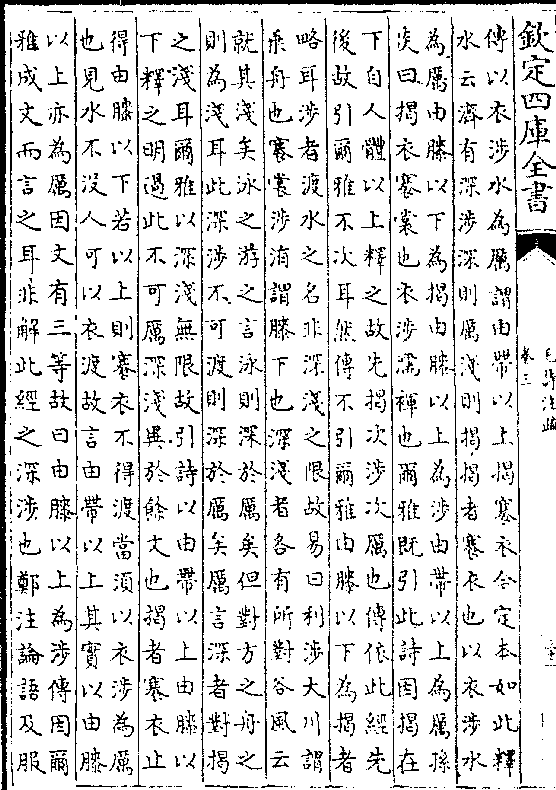 欽定四庫全書
毛詩注疏
卷三
傳以衣涉水為厲謂由帶以上揭褰衣今定本如此釋
水云濟有深涉深則厲淺則揭揭者褰衣也以衣涉水
為厲由膝以下為揭由膝以上為涉由帶以上為厲孫
炎曰揭衣褰裳也衣涉濡褌也爾雅既引此詩因揭在
下自人體以上釋之故先揭次涉次厲也傳依此經先
後故引爾雅不次耳然傳不引爾雅由膝以下為揭者
略耳涉者渡水之名非深淺之限故易曰利涉大川謂
乘舟也褰裳涉洧謂膝下也深淺者各有所對谷風云
就其淺矣泳之游之言泳則深於厲矣但對方之舟之
則為淺耳此深涉不可渡則深於厲矣厲言深者對揭
之淺耳爾雅以深淺無限故引詩以由帶以上由膝以
下釋之明過此不可厲深淺異於餘文也揭者褰衣止
得由膝以下若以上則褰衣不得渡當須以衣涉為厲
也見水不沒人可以衣渡故言由帶以上其實以由膝
以上亦為厲因文有三等故曰由膝以上為涉傳因爾
雅成文而言之耳非解此經之深涉也鄭注論語及服